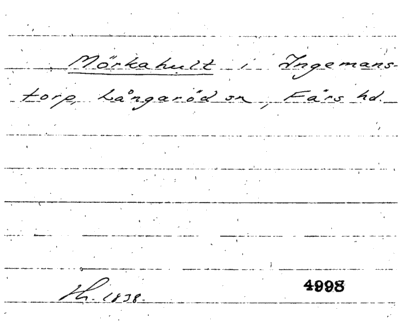 Mörkahult i Ingemans-
torp, Långaröd sn, Färs hd.
Hh. 1838.
4998